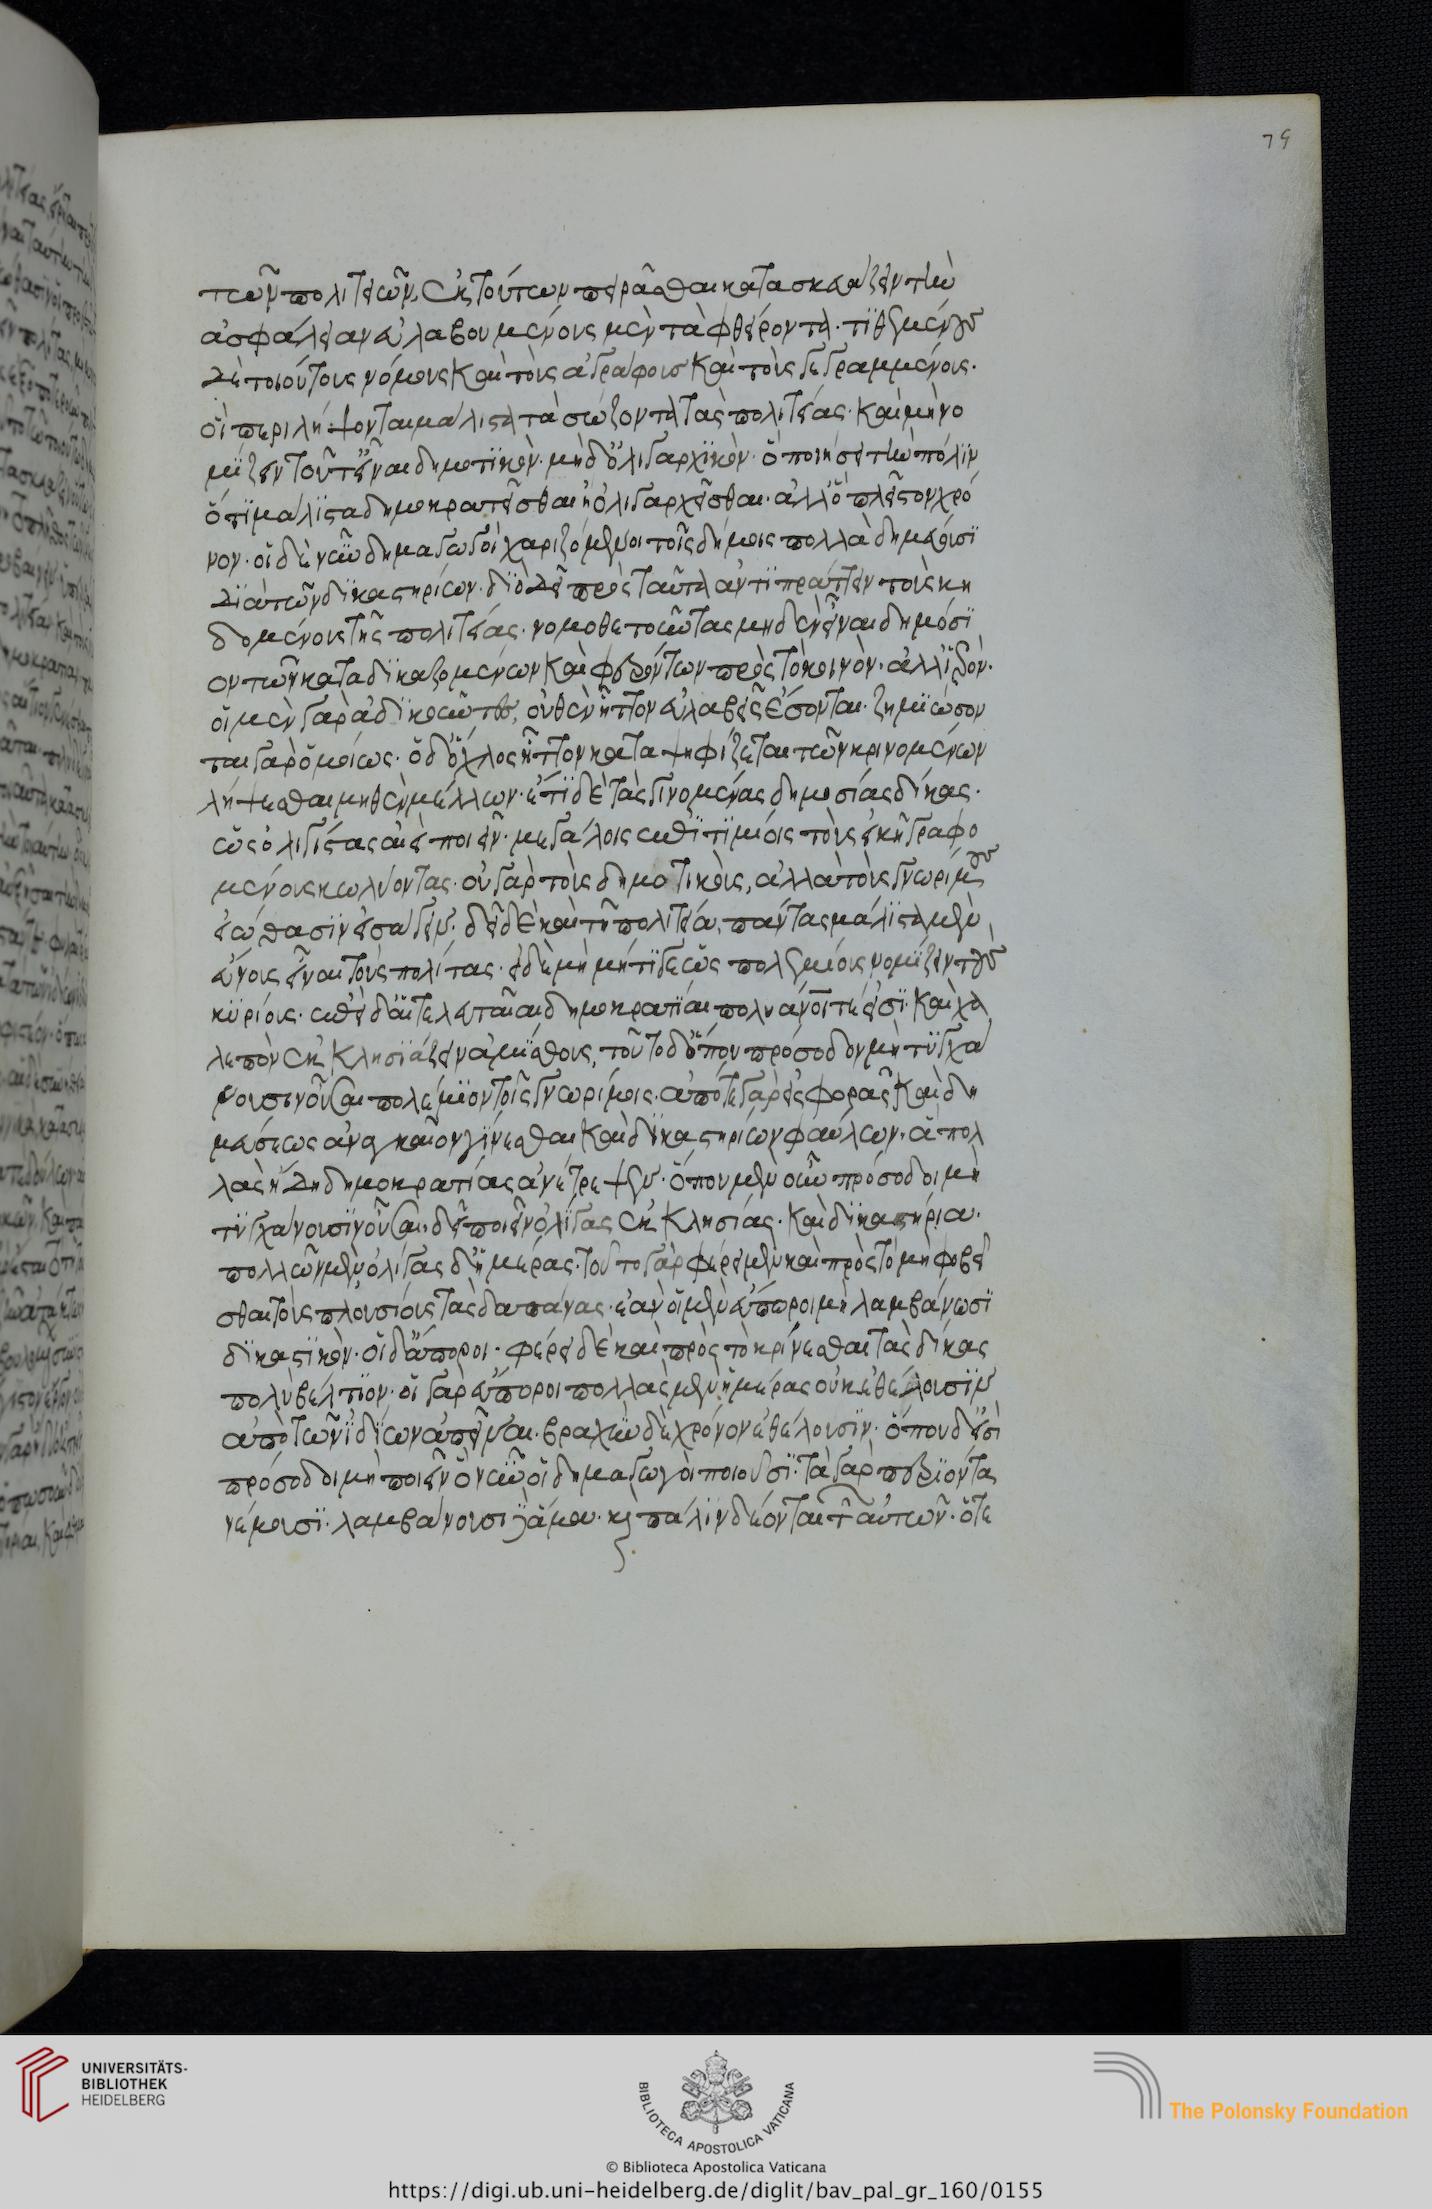 τῶν πολιτειῶν, ἐκ τούτων πειρᾶσθαι κατασκευάζειν τὴν
ἀσφάλειαν εὐλαβουμένους μὲν τὰ φθείροντα· τιθεμένους
δὲ τοιούτους νόμους καὶ τοὺς ἀγράφους καὶ τοὺς γεγραμμένους·
οἳ περιλήψονται μάλιστα τὰ σώζοντα τὰς πολιτείας· καὶ μὴ νο
μίζειν τοῦτ' εἶναι δημοτικὸν· μὴδ' ὀλιγαρχικὸν· ὃ ποιήσει τὴν πόλιν
ὅτι μάλιστα δημοκρατεῖσθαι ἢ ὀλιγαρχεῖσθαι· ἀλλ' ὃ πλεῖστον χρό
νον· οἱ δὲ νῦν δημαγωγοὶ χαριζόμενοι τοῖς δήμοις πολλὰ δημεύουσι
διὰ τῶν δικαστηρίων· διὸ δεῖ πρὸς ταῦτα ἀντιπράττειν τοὺς κη
δομένους τῆς πολιτείας· νομοθετοῦντας μηδὲν εἶναι δημόσι
ον τῶν καταδικαζομένων καὶ φερόντων πρὸς τὸ κοινὸν· ἀλλ' ἱερόν·
οἱ μὲν γὰρ ἀδικοῦντες, οὐθὲν ἧττον εὐλαβεῖς ἔσονται· ζημιώσον
ται γὰρ ὁμοίως· ὁ δ' ὄχλος ἧττον καταψηφίζεται τῶν κρινομένων
λήψεσθαι μηθὲν μέλλων· ἔτι δὲ τὰς γινομένας δημοσίας δίκας·
ὡς ὀλιγίστας ἀεὶ ποιεῖν· μεγάλοις ἐπιτιμίοις τοὺς εἰκῆ γραφο
μένους κωλύοντας· οὐ γὰρ τοὺς δημοτικοὺς, ἀλλὰ τοὺς γνωρίμους
εἰώθασιν εἰσάγειν· δεῖ δὲ καὶ τῆ πολιτεία πάντας μάλιστα μὲν
εὔνους εἶναι τοὺς πολίτας· εἰ δὲ μὴ μήτι γε ὡς πολεμίους νομίζειν τοὺς
κυρίους· ἐπεὶ δ' αἱ τελευταῖαι δημοκρατίαι πολυάνοί τέ εἰσι· καὶ χα
λεπὸν ἐκκλησιάζειν ἀμίσθους, τοῦτο δ' ὅπου πρόσοδοι μὴ τυγχά
νουσιν οὖσαι πολέμιον τοῖς γνωρίμοις· ἀπό τε γὰρ εἰσφορᾶς καὶ δη
μεύσεως ἀναγκαῖον γίνεσθαι καὶ δικαστηρίων φαύλων· ἃ πολ
λὰς ἤδη δημοκρατίας ἀνέτρεψεν· ὅπου μὲν οὖν πρόσοδοι μὴ
τυγχάνουσιν οὖσαι· δεῖ ποιεῖν ὀλίγας ἐκκλησίας· καὶ δικαστήρια·
πολλῶν μὲν ὀλίγας δ' ἡμέρας· τοῦτο γὰρ φέρει μὲν καὶ πρὸς τὸ μὴ φοβεῖ
σθαι τοὺς πλουσίους τὰς δαπάνας· ἐὰν οἱ μὲν εὔποροι μὴ λαμβάνωσι
δικαστικὸν· οἱ δ' ἄποροι· φέρει δὲ καὶ πρὸς τὸ κρίνεσθαι τὰς δίκας
πολὺ βέλτιον· οἱ γὰρ εὔποροι πολλὰς μὲν ἡμέρας οὐκ ἐθέλουσιν
ἀπὸ τῶν ἰδίων ἀπεῖναι· βραχὺν δὲ χρόνον ἐθέλουσιν· ὅπου δ' εἰσὶ
πρόσοδοι μὴ ποιεῖν ὃ νῦν οἱ δημαγωγοὶ ποιοῦσι· τὰ γὰρ περιόντα
νέμουσι· λαμβάνουσι δ' ἅμα· καὶ πάλιν δέονται τῶν αὐτῶν· ὅ τε